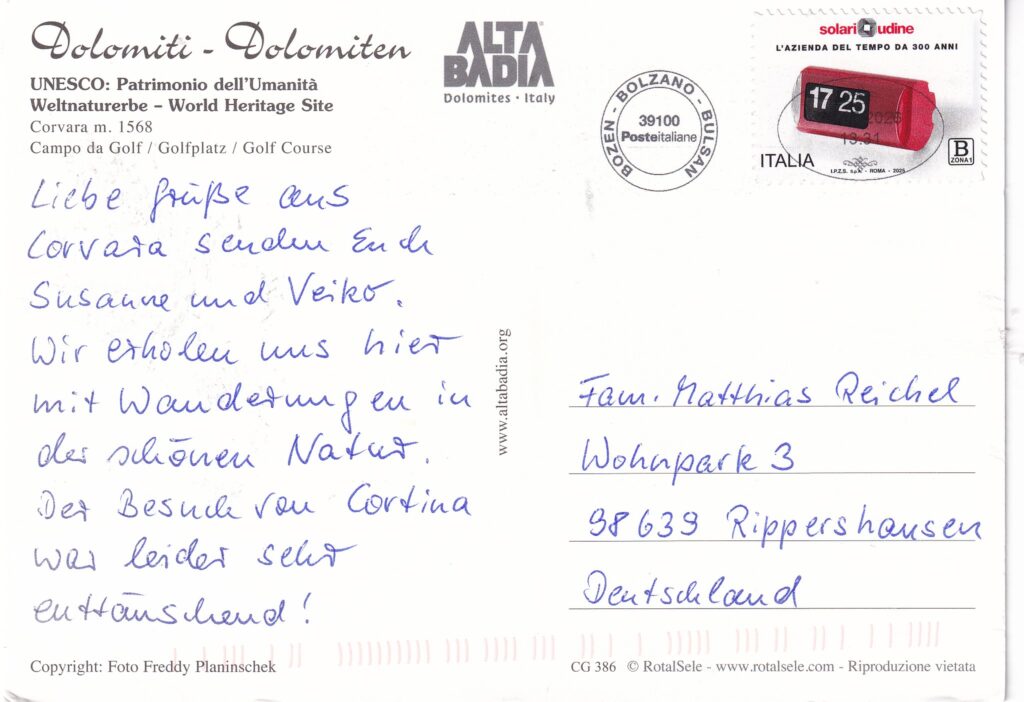 Dolomiti - Dolomiten
UNESCO: Patrimonio dell'Umanità
Weltnaturerbe – World Heritage Site
Corvara m. 1568
Campo da Golf / Golfplatz / Golf Course
ALTA
BADIA
Dolomites · Italy
BOZEN - BOLZANO - BULSAN
39100
Posteitaliane
solari udine
L'AZIENDA DEL TEMPO DA 300 ANNI
17 25
2025
13.31
ITALIA
B
ZONA 1
I.P.Z.S. S.p.A. - ROMA - 2025
Liebe Grüße aus
Corvara senden Euch
Susanne und Veiko.
Wir erholen uns hier
mit Wanderungen in
der schönen Natur.
Der Besuch von Cortina
war leider sehr
enttäuschend!
www.altabadia.org
Fam. Matthias Reichel
Wohnpark 3
98639 Rippershausen
Deutschland
Copyright: Foto Freddy Planinschek
CG 386 © RotalSele - www.rotalsele.com - Riproduzione vietata